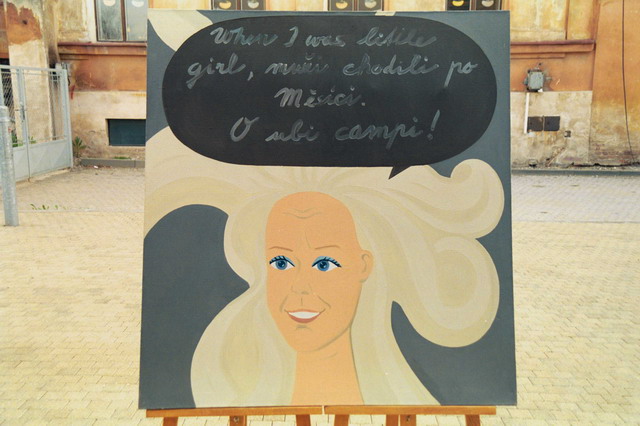 When I was little
girl, muži chodili po
Měsíci.
O ubi campi!